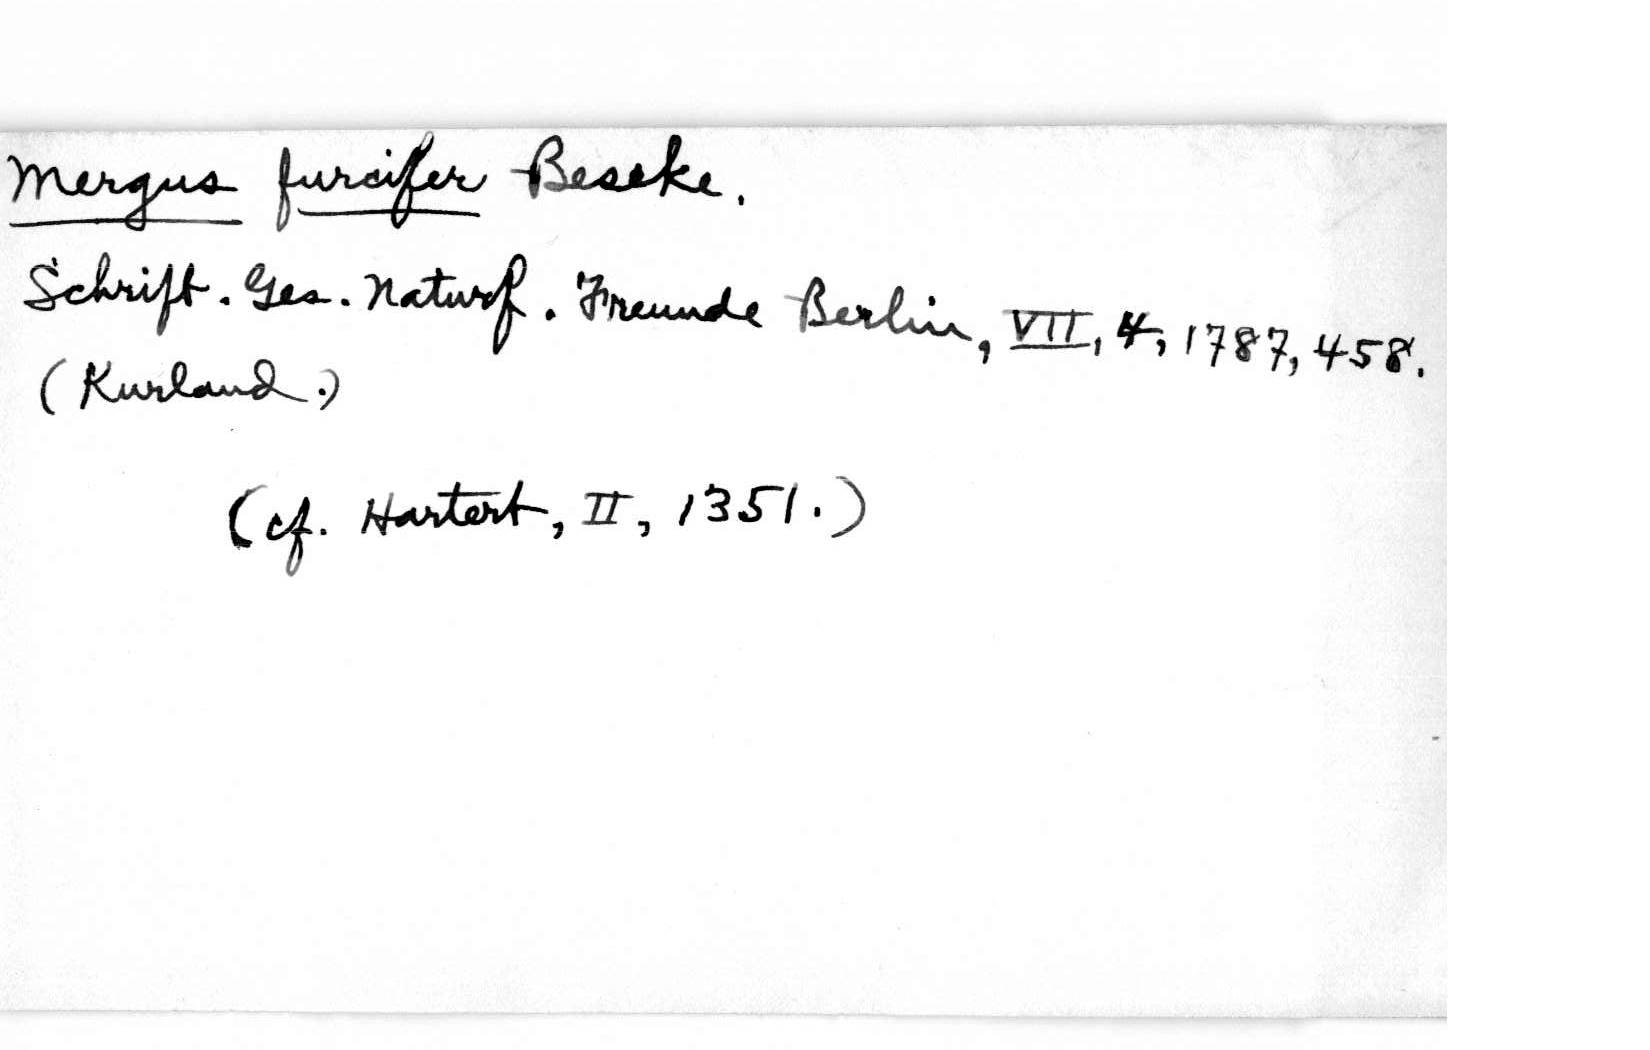 Mergus furcifer Beseke.
Schrift. Ges. Naturf. Freunde Berlin, VII, 4, 1787, 458.
(Kurland.)
(cf. Hartert, II, 1351.)